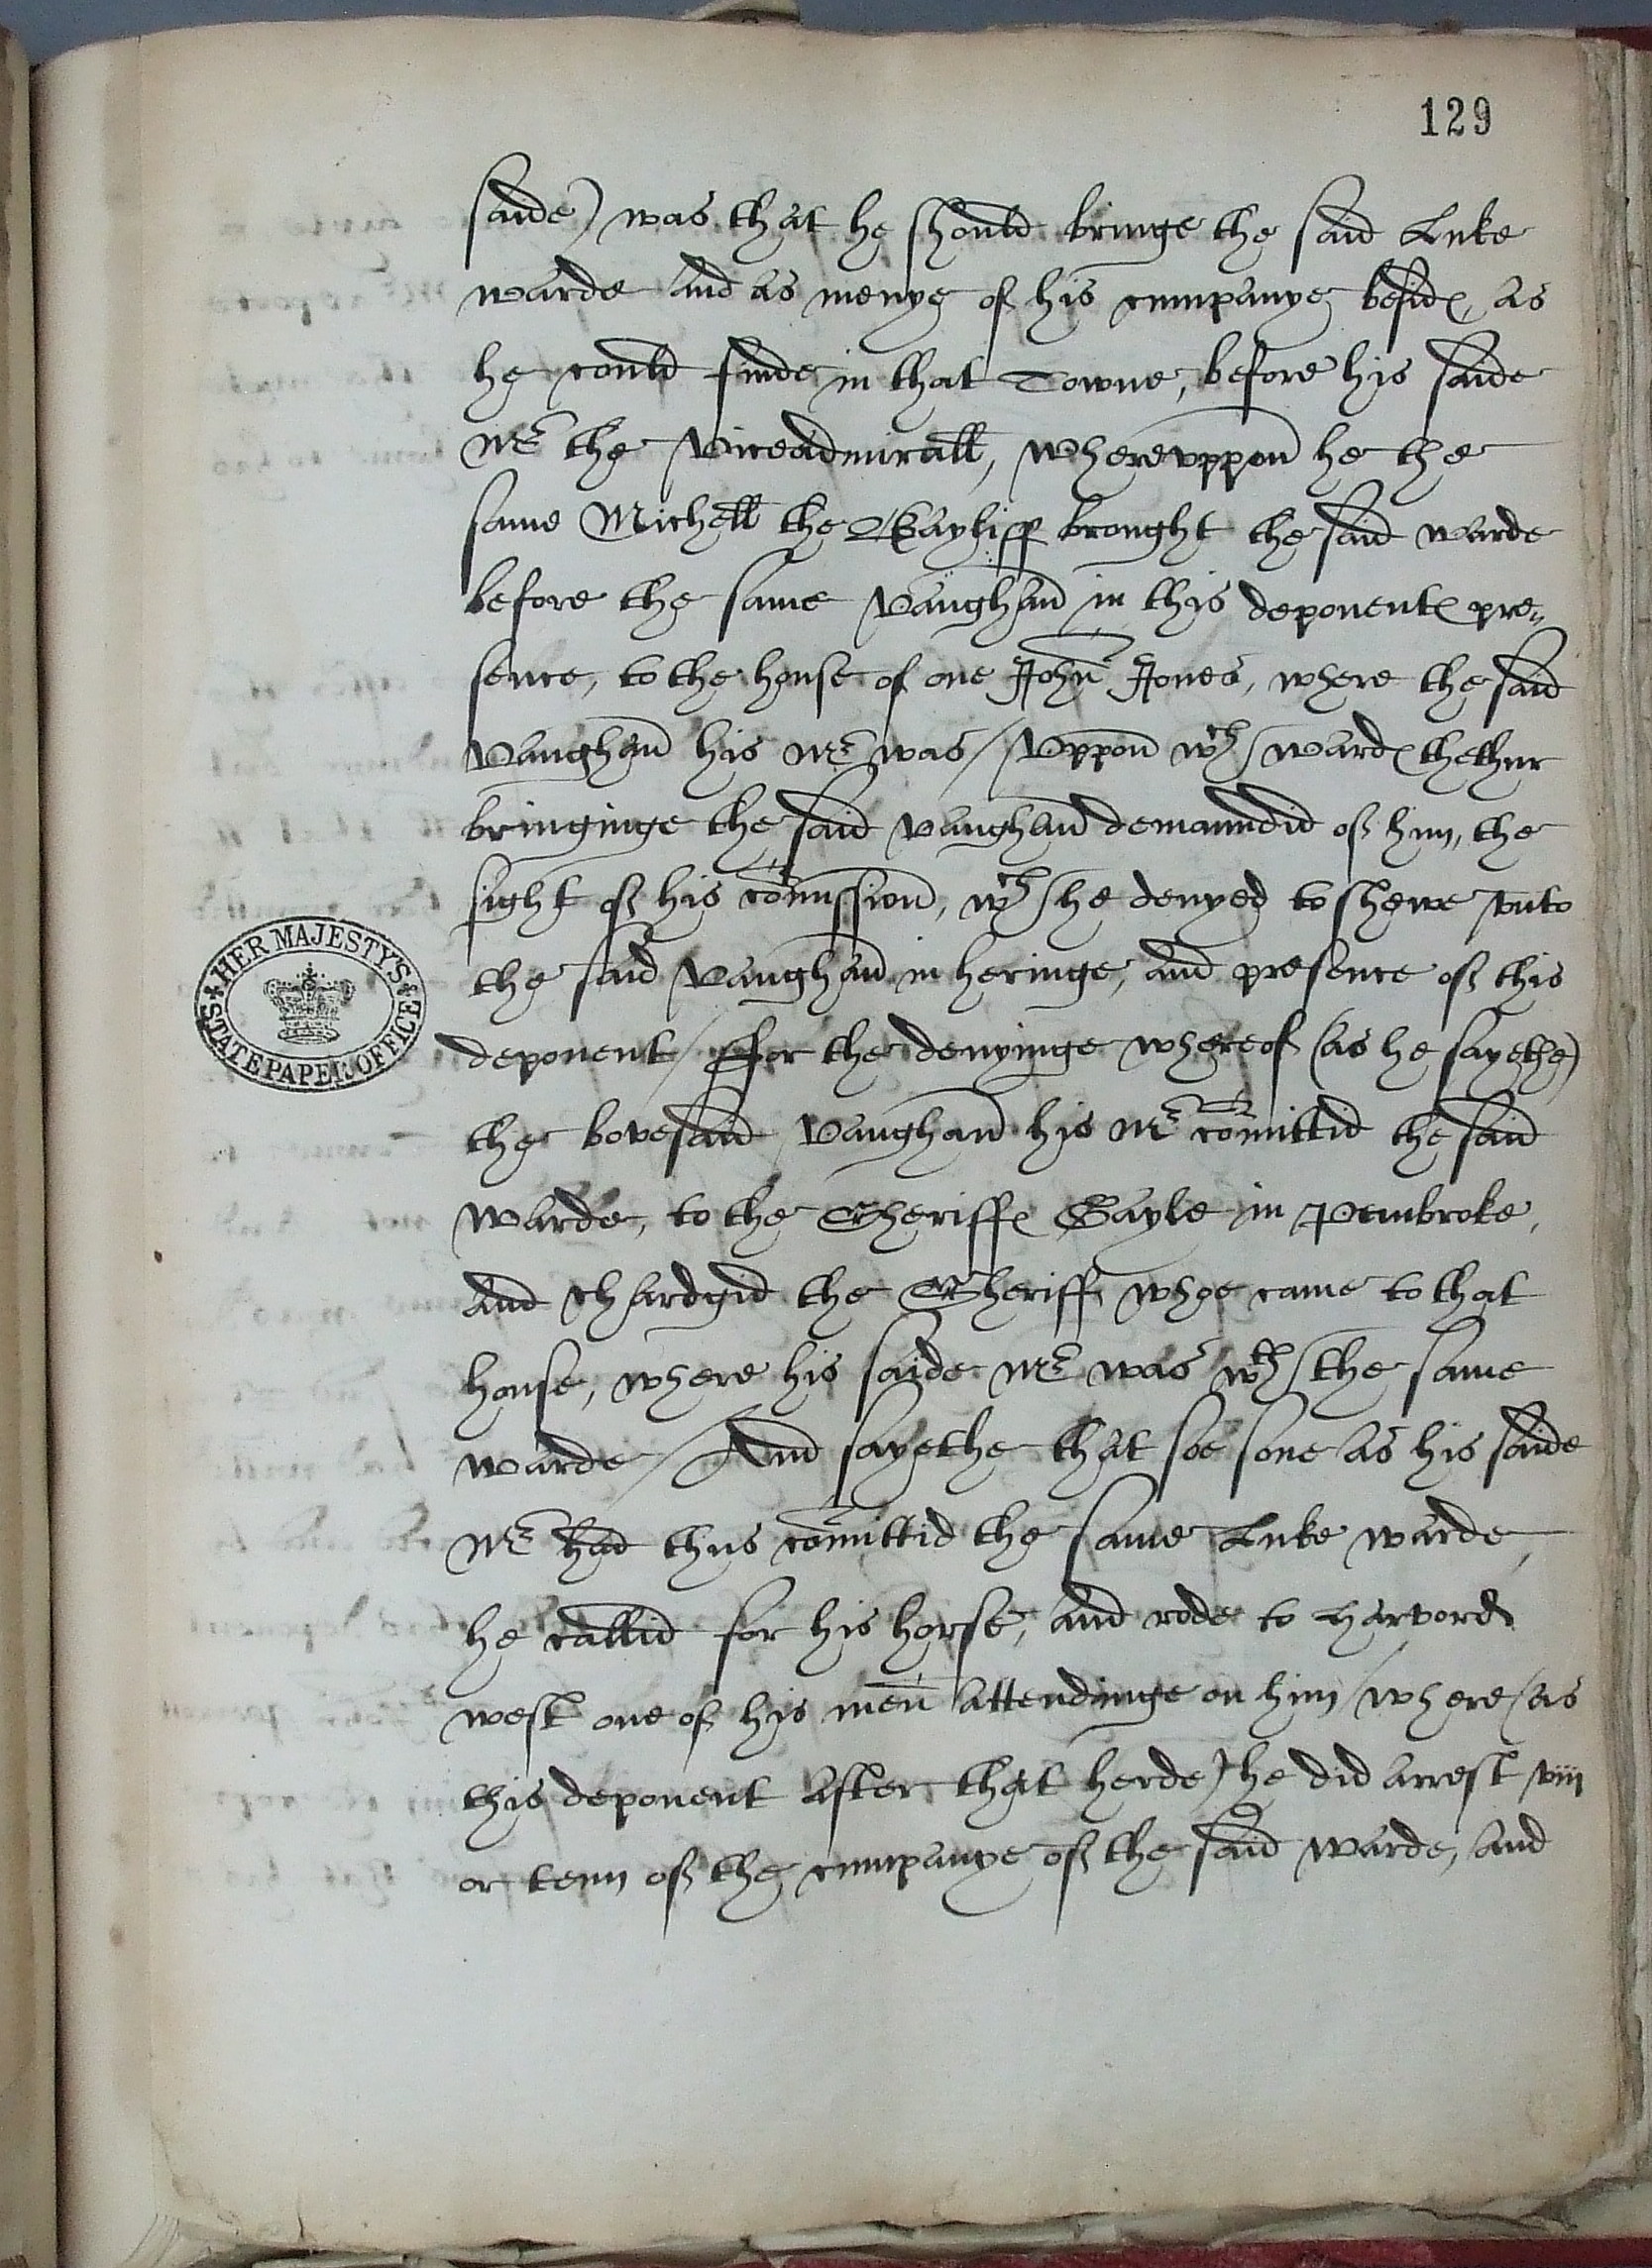 129
saide) was that he should bringe the said Luke
warde and as menye of his cumpanye besides as
he could finde in that Towne, before his saide
Mr the Viceadmirall, wherevppon he the
same Michell the Bayliff brought the said warde
before the same Vaughan in this deponentes pre,,
sence, to the house of one John Jones, where the said
Vaughan his Mr was / Vppon wch wardes thethur
bringinge the said vaughan demaundid of him, the
sight of his comission, wch he denyed to shewe vnto
the said Vaughan in heringe, and presence of this
deponent / For the denyinge whereof (as he sayethe)
the bovesaid Vaughan his Mr comittid the said
warde, to the Sheriffes Gayle in Pembroke,
and chardgid the Sheriff, whoe came to that
house, where his saide Mr was wth the same
warde / And sayethe that soe sone as his saide
Mr had thus comittid the same Luke warde,
he callid for his horse, and rode to Harford
west one of his men attendinge on him / where (as
this deponent after that herde) he did arrest viii
or tenn of the cumpanye of the said warde, and
HER MAJESTY'S
STATE PAPER OFFICE